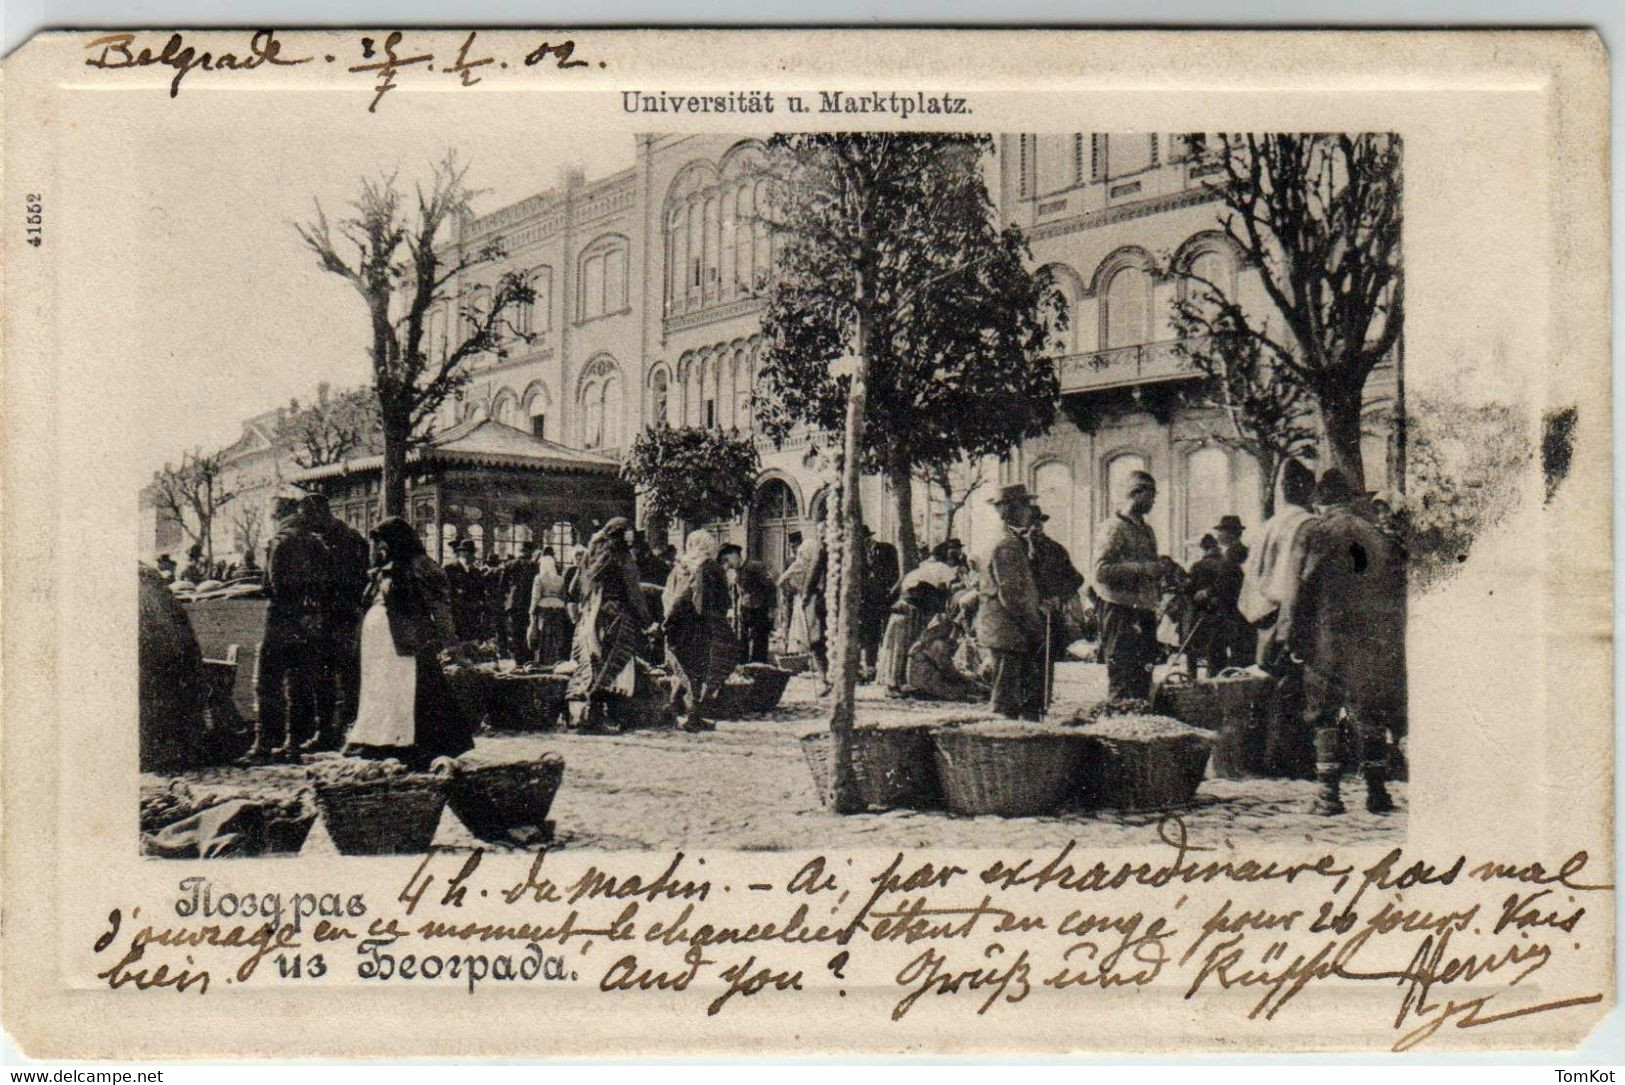 Belgrade. 25/7. 1/2. 02.
Universität u. Marktplatz.
41552
4 h. du matin. - Ai, par extraordinaire, pas mal
Поздрав
d'ouvrage en ce moment, le chancelier étant en congé pour 20 jours. Vais
bien. And you? Gruß und Küsse Henry
из Београда.
www.delcampe.net
TomKot